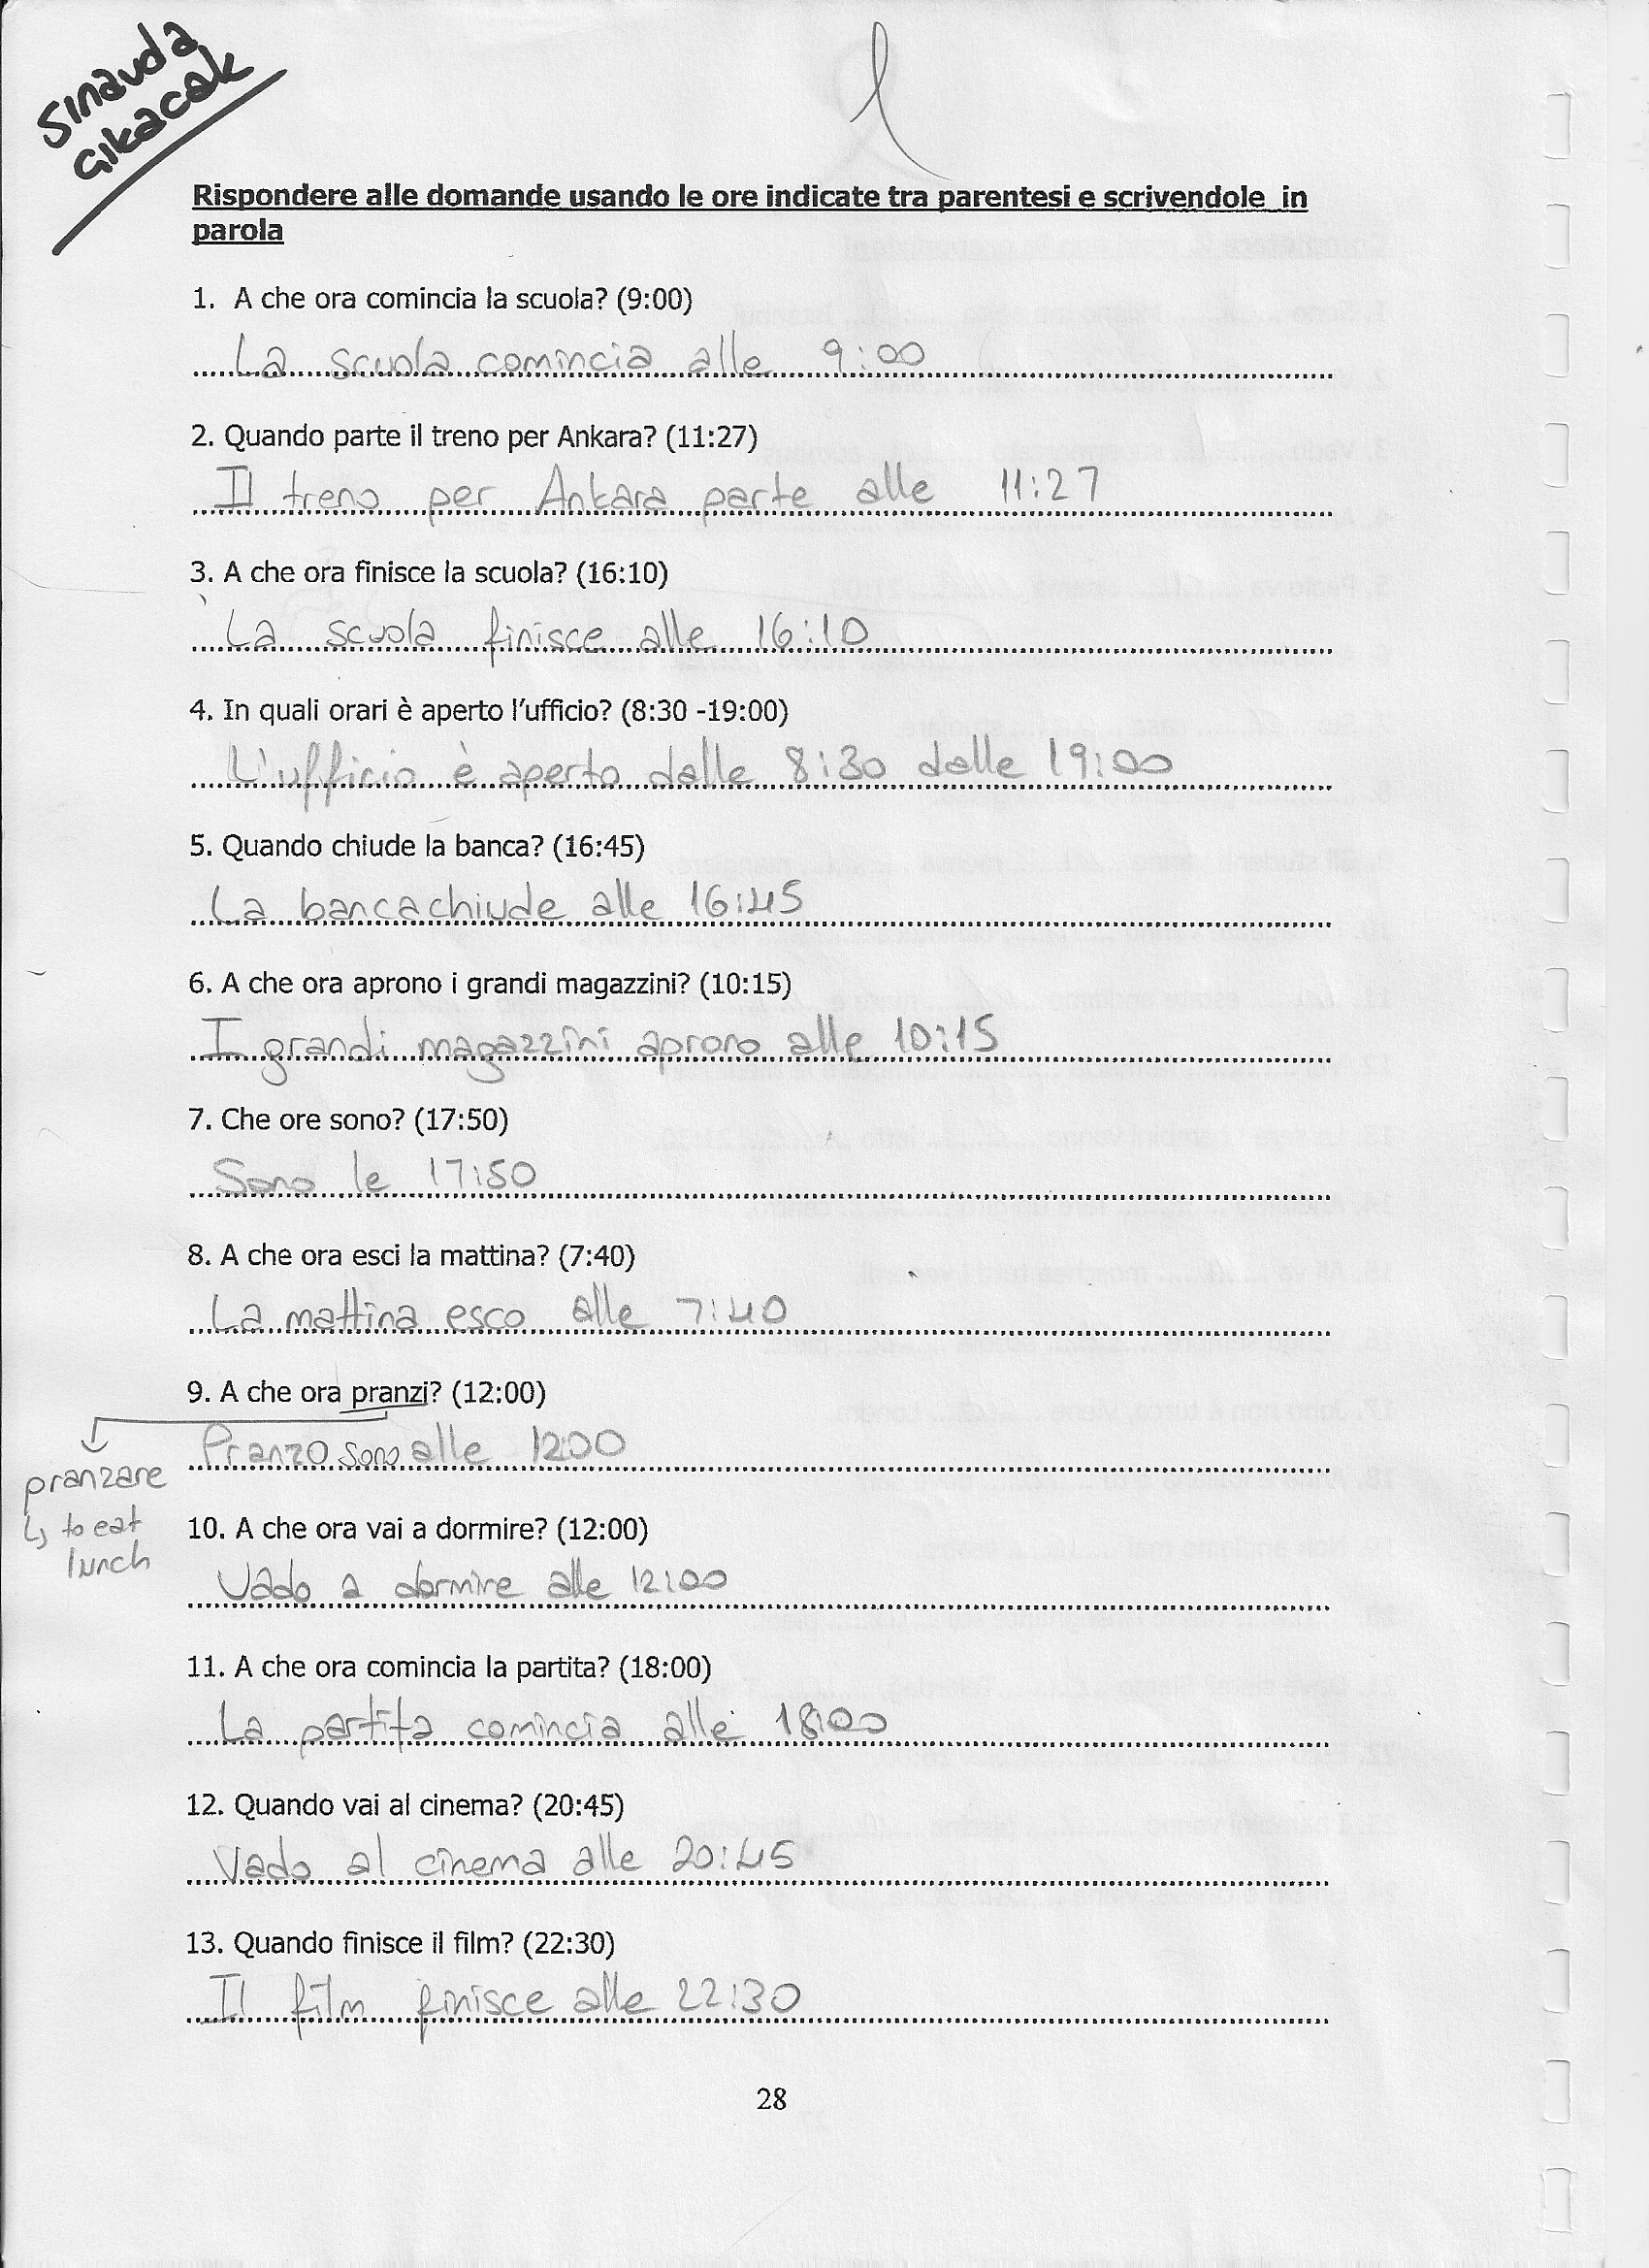 sınavda
çıkacak
Rispondere alle domande usando le ore indicate tra parentesi e scrivendole in
parola
1. A che ora comincia la scuola? (9:00)
La scuola comincia alle 9:00
2. Quando parte il treno per Ankara? (11:27)
Il treno per Ankara parte alle 11:27
3. A che ora finisce la scuola? (16:10)
La scuola finisce alle 16:10
4. In quali orari è aperto l'ufficio? (8:30 -19:00)
L'ufficio è aperto dalle 8:30 dalle 19:00
5. Quando chiude la banca? (16:45)
La banca chiude alle 16:45
6. A che ora aprono i grandi magazzini? (10:15)
I grandi magazzini aprono alle 10:15
7. Che ore sono? (17:50)
Sono le 17:50
8. A che ora esci la mattina? (7:40)
La mattina esco alle 7:40
9. A che ora pranzi? (12:00)
Pranzo sono alle 12:00
pranzare
↳ to eat
lunch
10. A che ora vai a dormire? (12:00)
Vado a dormire alle 12:00
11. A che ora comincia la partita? (18:00)
La partita comincia alle 18:00
12. Quando vai al cinema? (20:45)
Vado al cinema alle 20:45
13. Quando finisce il film? (22:30)
Il film finisce alle 22:30
28